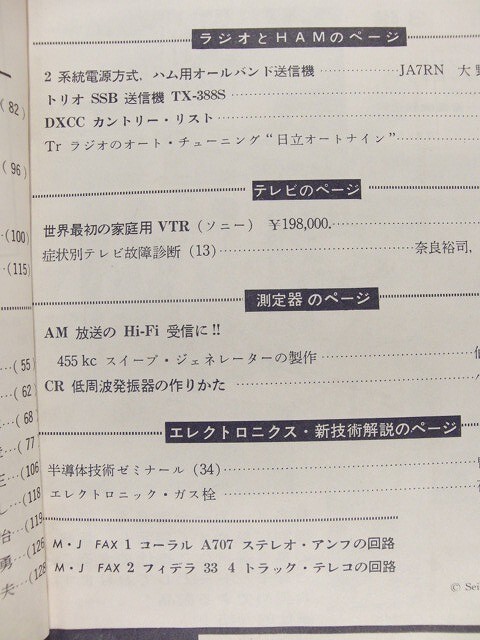 ラジオとHAMのページ
2 系統電源方式,ハム用オールバンド送信機……JA7RN 大
トリオ SSB 送信機 TX-388S
DXCC カントリー・リスト
Tr ラジオのオート・チューニング“日立オートナイン”
テレビのページ
世界最初の家庭用 VTR (ソニー) ¥198,000.
症状別テレビ故障診断 (13)……奈良裕司,
測定器のページ
AM 放送の Hi-Fi 受信に!!
455 kc スイープ・ジェネレーターの製作
CR 低周波発振器の作りかた
エレクトロニクス・新技術解説のページ
半導体技術ゼミナール (34)
エレクトロニック・ガス栓
M・J FAX 1 コーラル A707 ステレオ・アンプの回路
M・J FAX 2 フィデラ 33 4 トラック・テレコの回路
© Sei
(82)
(96)
(100)
(115)
(55)
(62)
(68)
(77)
(106)
(118)
治…(119)
勇…(126)
夫…(128)